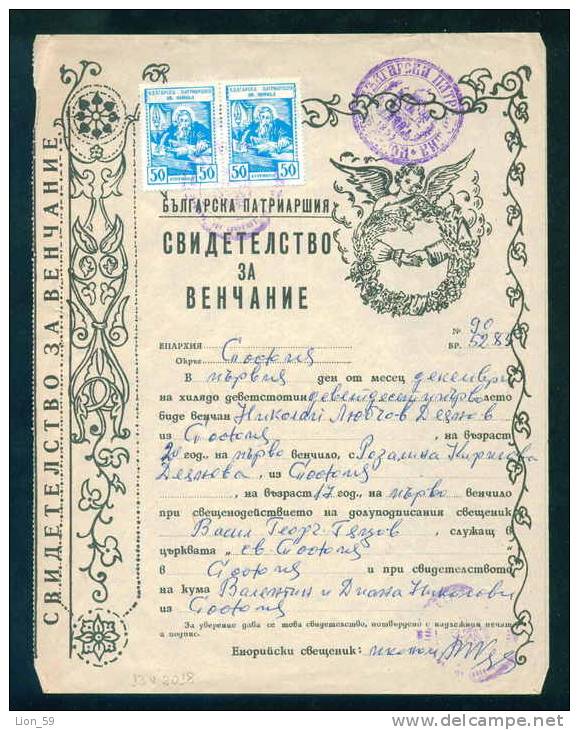 БЪЛГАРСКА ПАТРИАРШИЯ
50 50
СВИДЕТЕЛСТВО ЗА ВЕНЧАНИЕ
БЪЛГАРСКА ПАТРИАРШИЯ
СВИДЕТЕЛСТВО
ЗА
ВЕНЧАНИЕ
№ 90
БР. 5289
ЕПАРХИЯ София
Окръг
В първия ден от месец декември
на хилядо деветстотин деветдесет и първо лето
биде венчан Николай Любчов Децлов
из София, на възраст
20 год., на първо венчило, с Розалина Кирилова
Децлова, из София
, на възраст 17 год., на първо венчило
при свещенодействието на долуподписания свещеник
Васил Георг. , служащ в
църквата „св. София"
в София и при свидетелството
на кума Валентин и Диана Николови
из София
За уверение дава се това свидетелство, потвърдено с надлежния печат
и подпис.
Енорийски свещеник: иконом
13 V 2018
Lion_59
www.delcampe.net